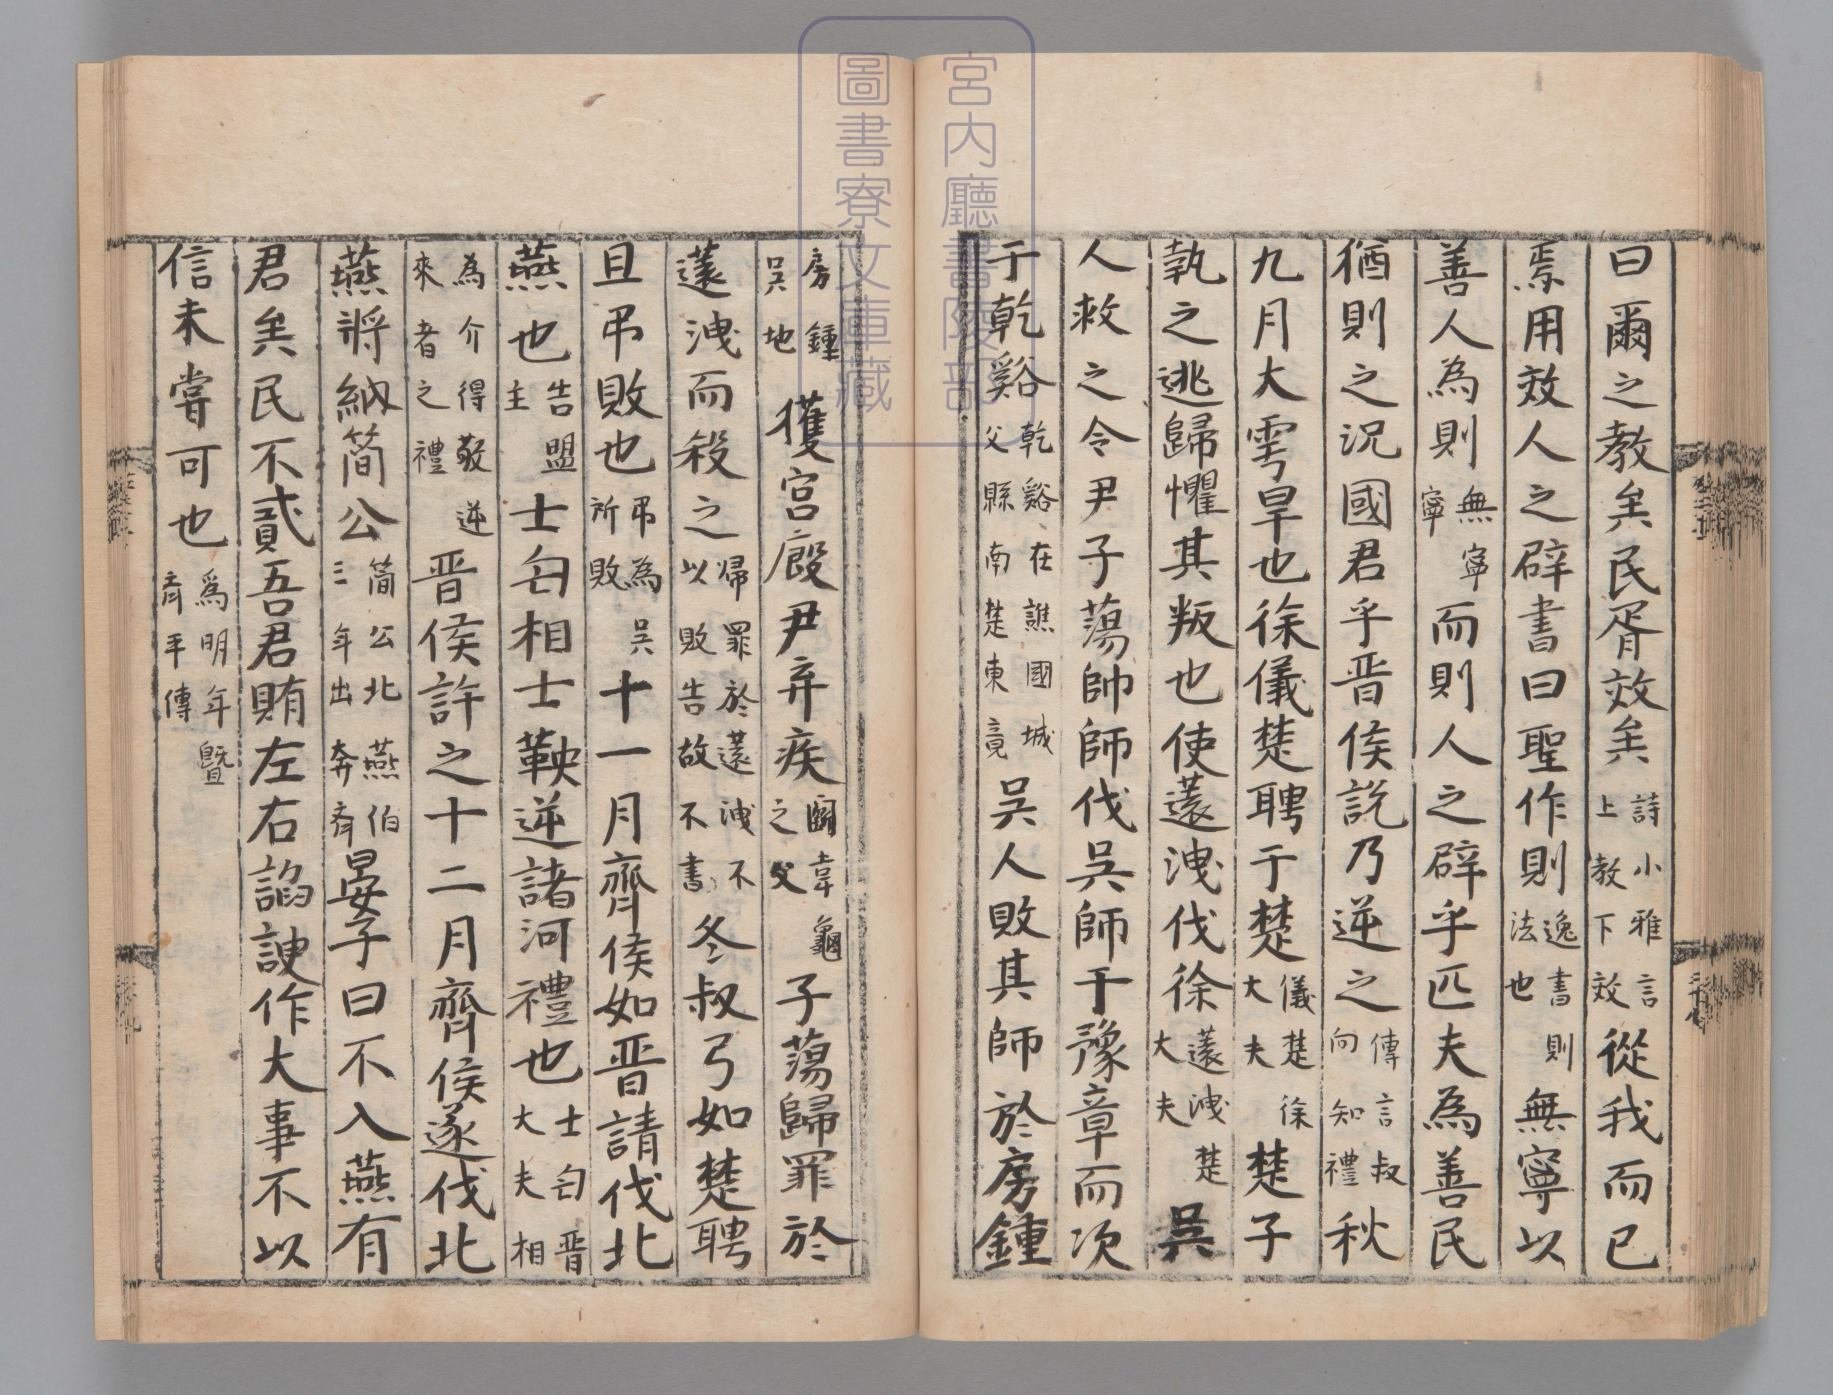 曰爾之教矣民胥效矣詩小雅言上教下效從我而已
焉用效人之辟書曰聖作則逸書則法也無寧以
善人為則無寧寧而則人之辟乎匹夫為善民
猶則之況國君乎晉侯說乃逆之傳言叔向知禮秋
九月大雩旱也徐儀楚聘于楚儀楚徐大夫楚子
執之逃歸懼其叛也使薳洩伐徐薳洩楚大夫吳
人救之令尹子蕩帥師伐吳師于豫章而次
于乾谿乾谿在譙國城父縣南楚東竟吳人敗其師於房鍾
房鍾吳地獲宮廄尹弃疾鬭韋龜之父子蕩歸罪於
薳洩而殺之歸罪於薳洩不以敗告故不書冬叔弓如楚聘
且弔敗也弔為吳所敗十一月齊侯如晉請伐北
燕也告盟主士匄相士鞅逆諸河禮也士匄晉大夫相
為介得敬逆來者之禮晉侯許之十二月齊侯遂伐北
燕將納簡公簡公北燕伯三年出奔齊晏子曰不入燕有
君矣民不貳吾君賄左右諂諛作大事不以
信未嘗可也為明年暨齊平傳
宮內廳書陵部
圖書寮文庫藏